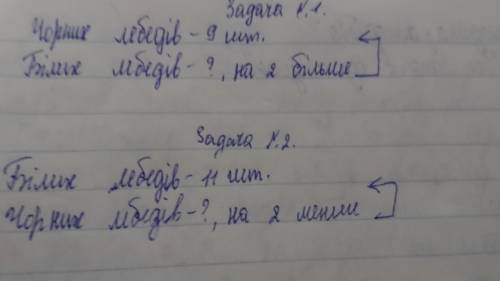 Задача N.1.
Чорних лебедів - 9 шт.
Білих лебедів - ?, на 2 більше
Задача N.2.
Білих лебедів - 11 шт.
Чорних лебедів - ?, на 2 менше